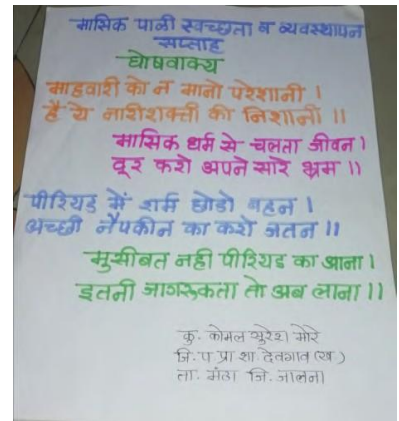 मासिक पाळी स्वच्छता व व्यवस्थापन
सप्ताह
घोषवाक्य
माहवारी को न मानो परेशानी ।
है ये नारीशक्ती की निशानी ।।
मासिक धर्म से चलता जीवन ।
दूर करो अपने सारे भ्रम ।।
पीरियड में शर्म छोडो बहन ।
अच्छी नैपकीन का करो जतन ।।
मुसीबत नही पीरियड का आना ।
इतनी जागरूकता तो अब लाना ।।
कु. कोमल सुरेश मोरे
जि. प प्रा शा देवगाव (ख)
ता. मंठा जि. जालना